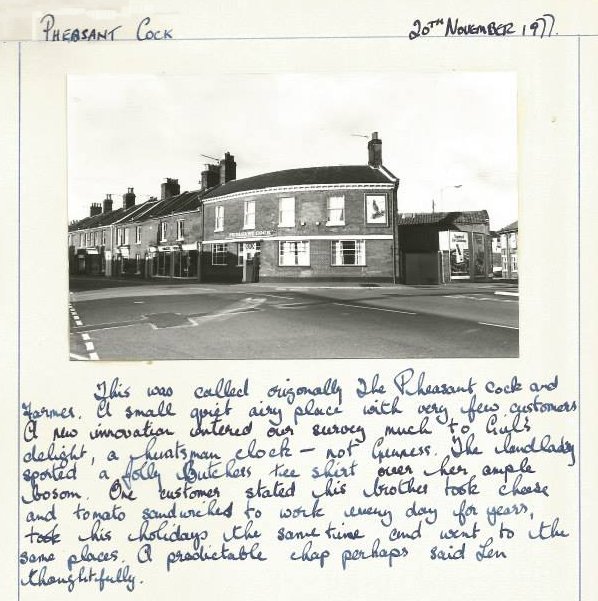 PHEASANT COCK
20TH NOVEMBER 1977.
This was called origonally The Pheasant cock and
Farmer. A small quiet airy place with very few customers
A new innovation entered our survey much to Girl's
delight, a huntsman clock – not Guiness. The landlady
sported a jolly Butchers tee shirt over her ample
bosom. One customer stated his brother took cheese
and tomato sandwiches to work every day for years,
took his holidays the same time and went to the
same places. A predictable chap perhaps said Len
thoughtfully.